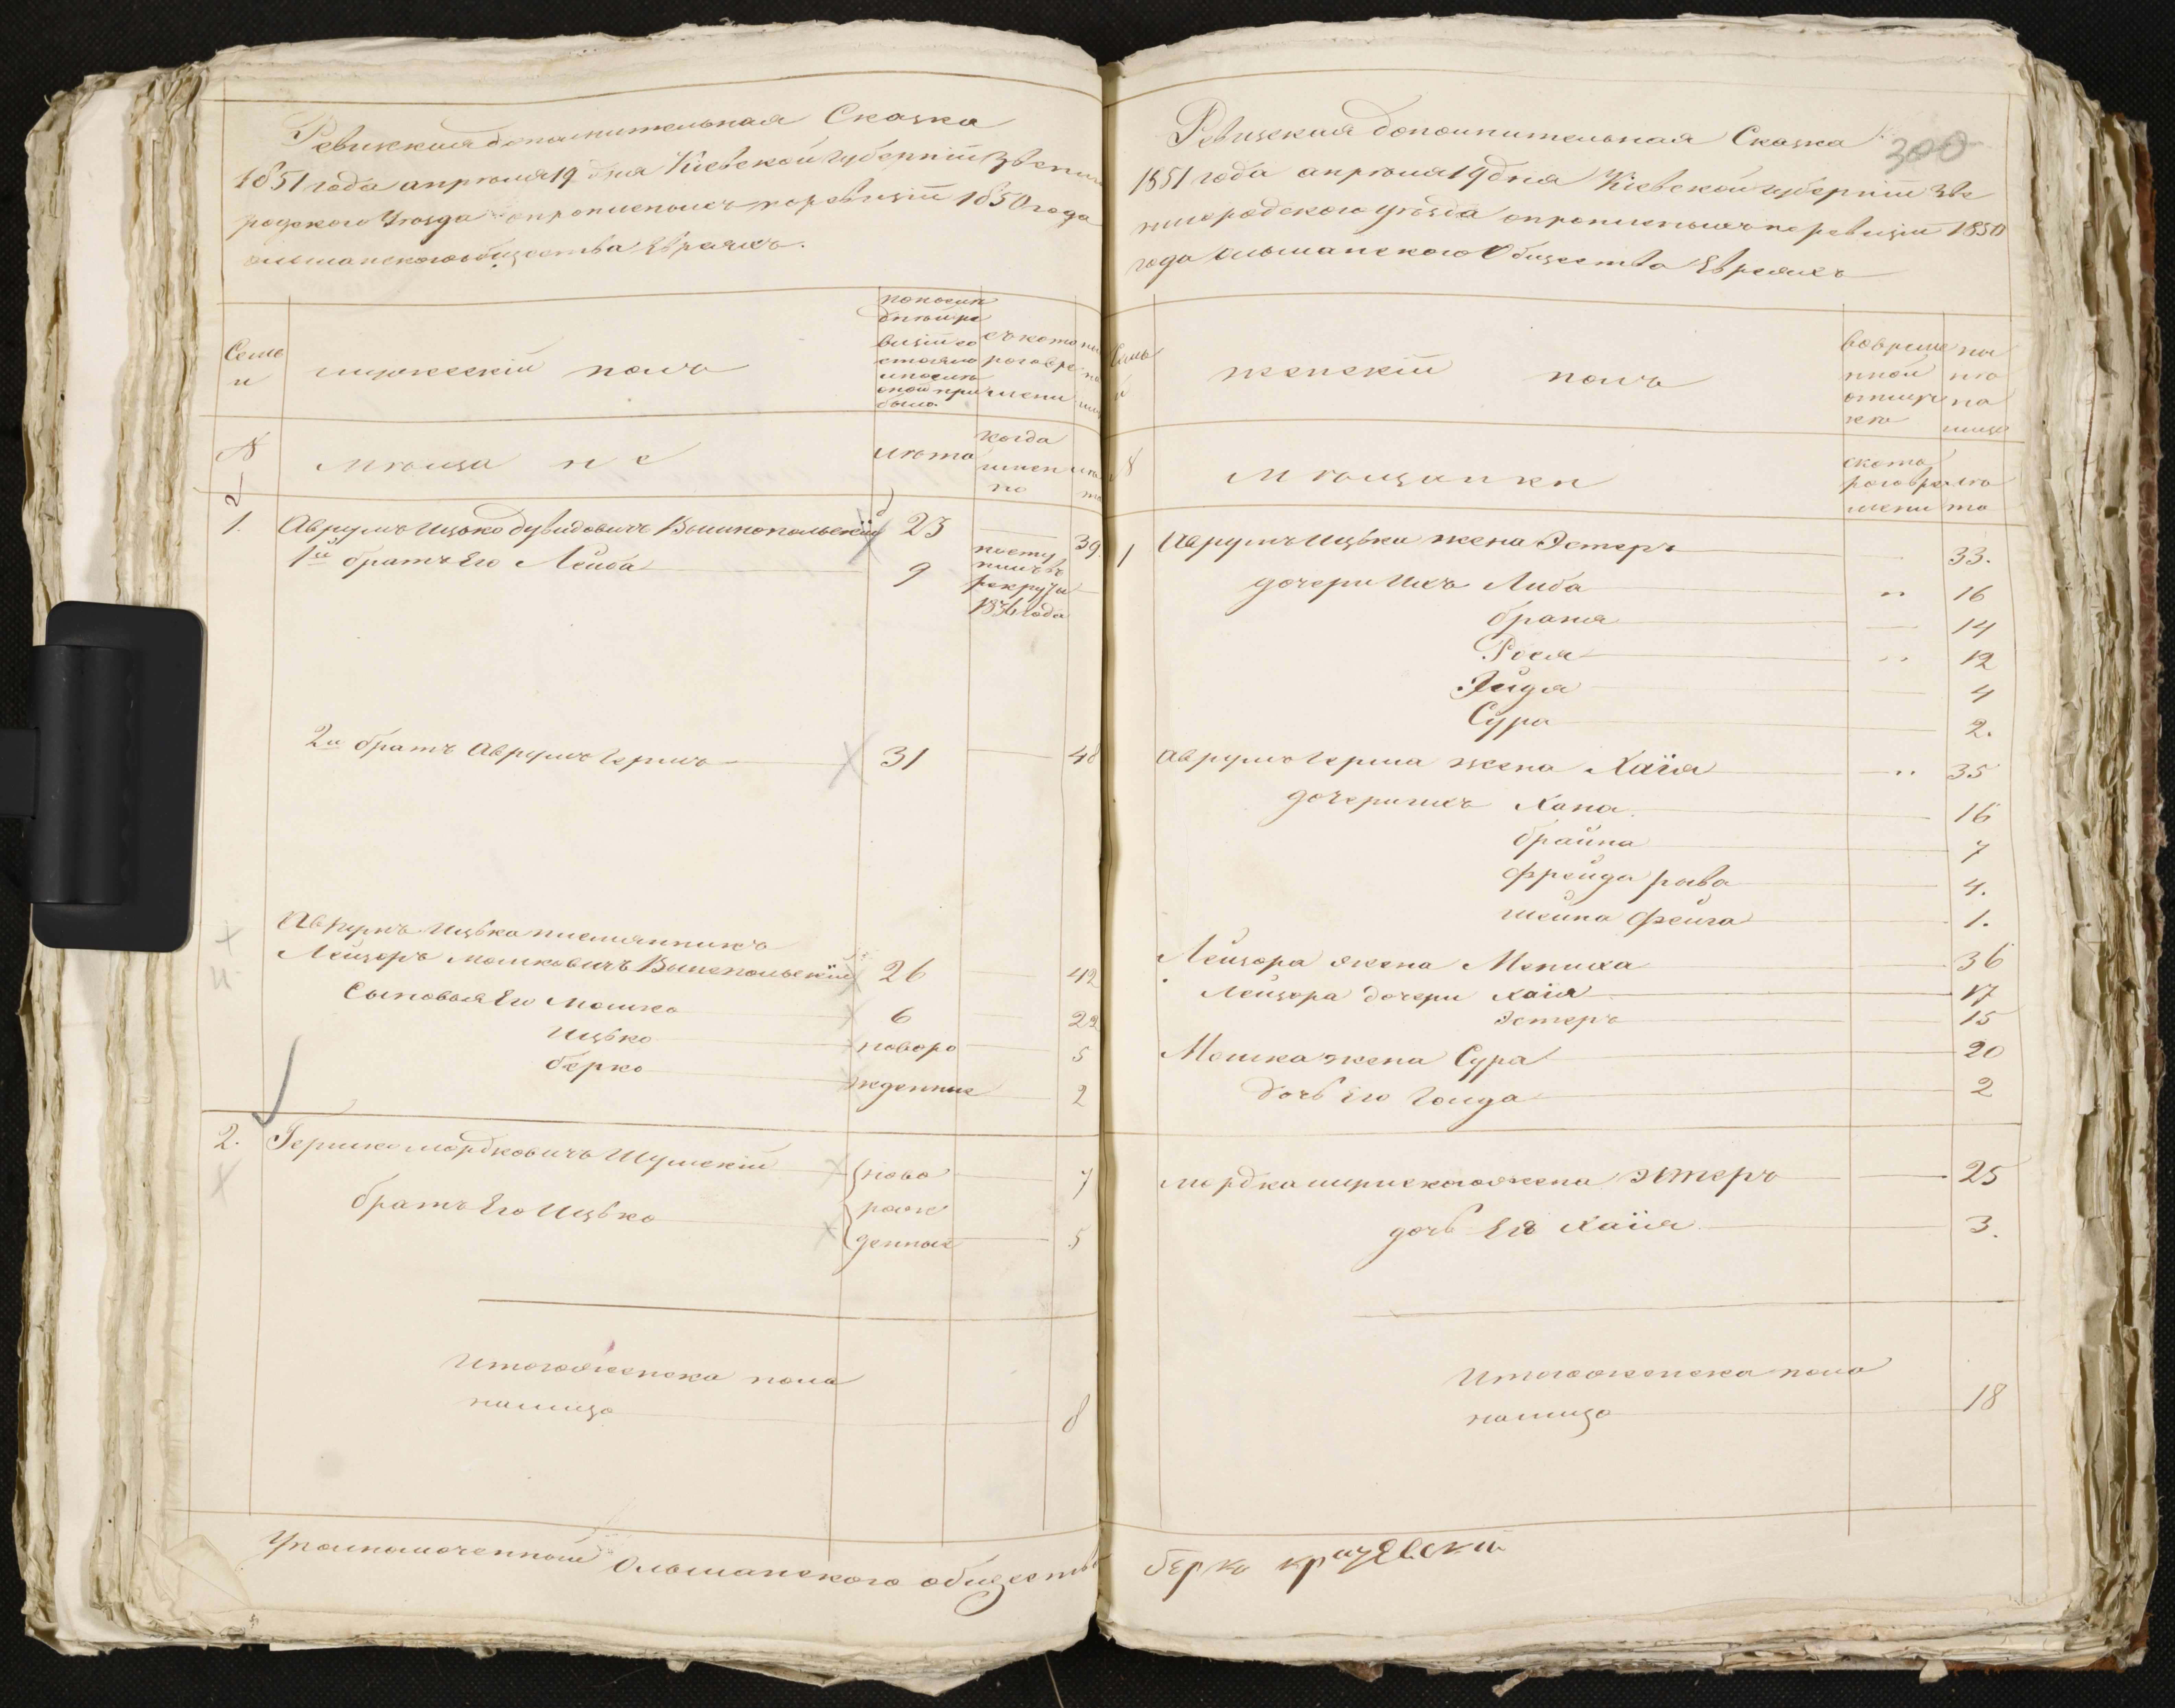 Ревизская дополнительная Сказка
1851 года апреля 19 дня Кіевской губерніи Звени
родского Уѣзда о прописныхъ по ревизіи 1850 года
ольшанского общества Евреяхъ.
Семи
и
мужескій полъ
по послѣ
дней ре
визіи со
стояло
и послѣ
оной при
было.
съ кото
раго вре
мени
№
мѣща не
лѣта
когда
имен
но
лѣ
та
1. Аврумъ Ицько Дувидовичъ Вышнопольскій 23 39.
1й братъ Его Лейба 9
посту
пилъ въ
рекруты
1836 года
2й братъ Аврумъ Гершъ 31 48
Аврумъ Ицька племянникъ
Лейзоръ Мошковичъ Вышепольскій 26 42
Сыновья Его Мошко 6 22
Ицько новоро 5
берко жденные 2
2. Гершко мордковичъ Шумскій ново 7
рож
братъ Его Ицько денные 5
Итого женска пола
налицо 8
Уполномоченный Ольшанского общества
300
Ревизская дополнительная Сказка
1851 года апреля 19 дня Кіевской губерніи Зве
нигородского уѣзда о прописныхъ по ревизіи 1850
года ольшанского Общества Евреяхъ
Семь
и
женскій полъ
во време
нной
отлуч
кѣ
на
ли
цо
№
мѣщанки
съ кото
раго вре
мени
лѣ
та
1 Аврумъ Ицька жена Эстеръ 33.
дочери Ихъ Либа " 16
браня 14
Рося " 12
Эйдя 4
Сура 2.
Аврумъ Герша жена Хаія " 35
дочери ихъ Хана 16
брайна 7
фрейда рыва 4.
шейна фейга 1.
Лейзора жена Мениха 36
Лейзора дочери хаія 17
Эстеръ 15
Мошка жена Сура 20
дочь Его Голда 2
мордка шумскаго жена Эстеръ 25
дочь Его Хаія 3.
Итого женска пола
налицо 18
берко кразевский